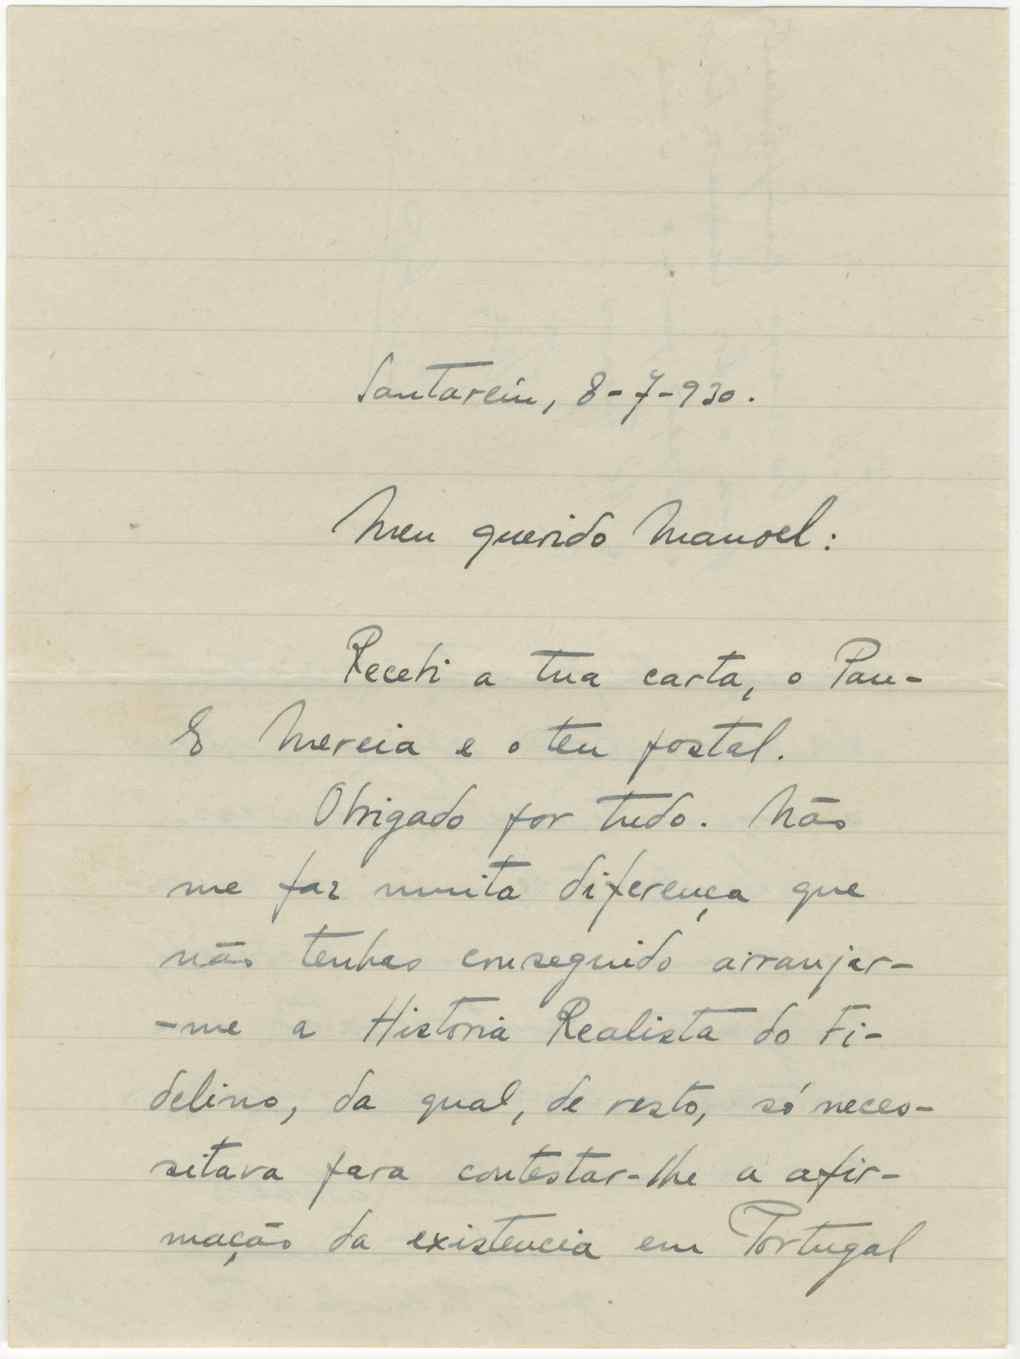 Santarém, 8-7-930.
Meu querido Manoel:
Recebi a tua carta, o Pau-
lo Mereia e o teu postal.
Obrigado por tudo. Não
me faz muita diferença que
não tenhas conseguido arranjar-
-me a Historia Realista do Fi-
delino, da qual, de resto, só neces-
sitava para contestar-lhe a afir-
mação da existencia em Portugal